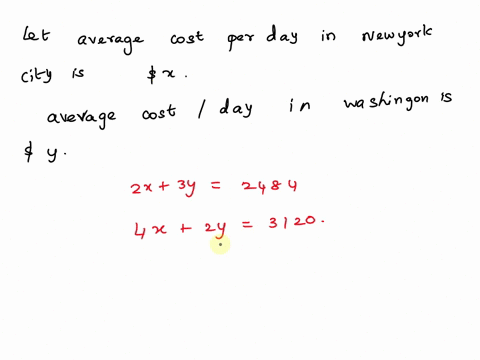 Let average cost per day in Newyork
city is $x.
average cost / day in washingon is
$ y.
2x + 3y = 2484
4x + 2y = 3120.